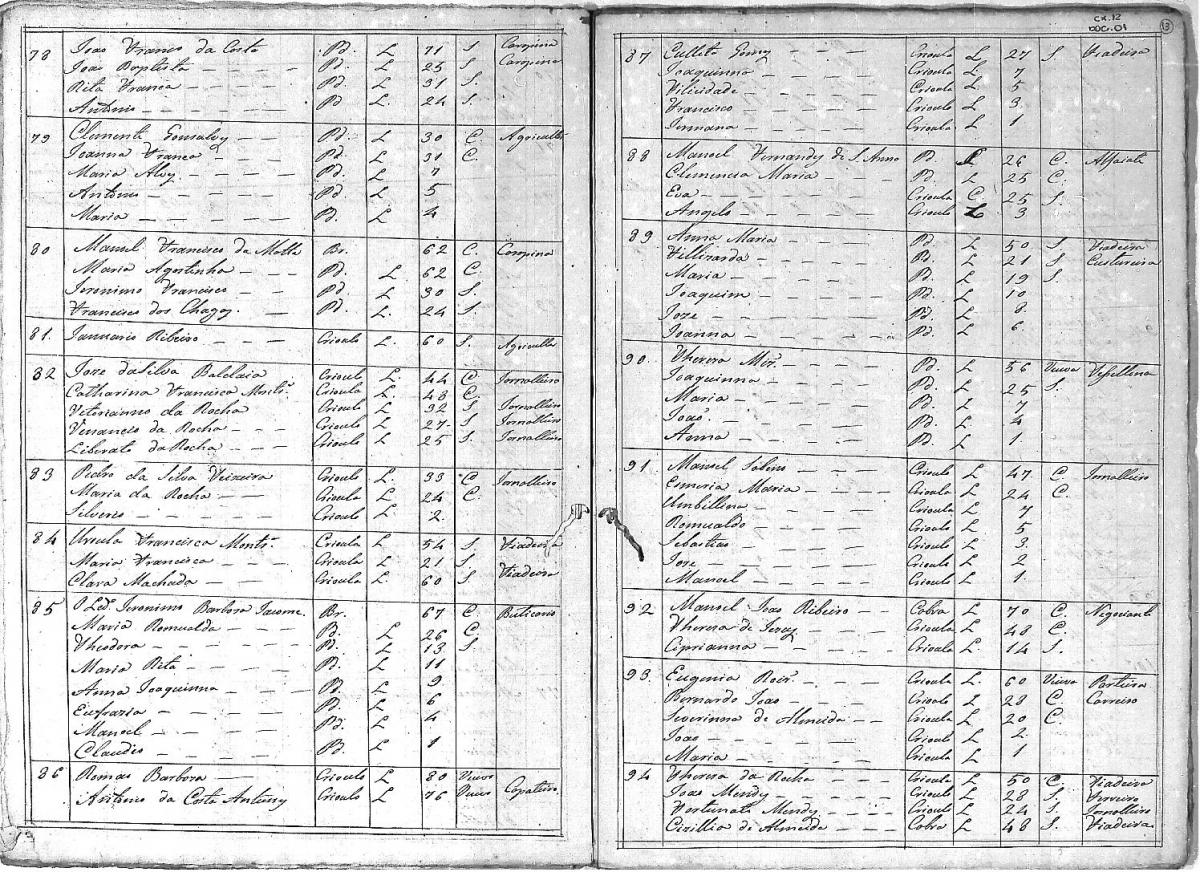 CX.12
DOC.01
13
78 Joao Franco da Costa Pd. L 71 S. Carapina
Joao Baptista Pd. L 25 S. Carapina
Rita Franca Pd. L 31 S.
Antonio Pd. L 24 S.
79 Clemente Gonsalvz Pd. L 30 C. Agricultr
Joanna Franca Pd. L 31 C.
Maria Alvz Pd. L 7
Antonio Pd. L 5
Maria Pd. L 4
80 Manoel Francisco da Motta Br. 62 C. Carapina
Maria Agostinha Pd. L 62 C.
Jeronimo Francisco Pd. L 30 S.
Francisco das Chagas Pd. L 24 S.
81. Januario Ribeiro Crioulo L. 60 S. Agricultr
82 Joze da Silva Crioulo L. 44 C. Jornalleiro
Catharina Francisca Montr. Crioula L 48 C.
Vitorianno da Rocha Crioulo L 32 S. Jornalleiro
Venancio da Rocha Crioulo L 27 S. Jornalleiro
Liberato da Rocha Crioulo L 25 S Jornalleiro
83 Pedro da Silva Teixeira Crioulo L. 33 C Jornalleiro
Maria da Rocha Crioula L 24 C.
Silverio Crioulo L 2
84 Ursula Francisca Montr. Crioula L 54 S. Fiadeira
Maria Francisca Crioula L 21 S.
Clara Machada Crioula L 60 S Fiadeira
85 O Led. Jeronimo Barboza Jacome Br. 67 C. Buticario
Maria Romualda Pd. L 26 C.
Theodora Pd. L 13 S
Maria Rita Pd. L 11
Anna Joaquinna Pd. L 9
Eufrazia Pd. L 6
Manoel Pd. L 4
Claudio Pd. L 1
86 Barboza Crioulo L 80 Viuvo
Antonio da Costa Antunz Crioulo L 76 Viuvo Capateiro
87 Gomz Crioula L 27 S. Fiadeira
Joaquinna Crioula L 7
Filicidade Crioula L 5
Francisco Crioulo L 3
Jermana Crioula L 1
88 Manoel Fernandz de S. Anna Pd. L 26 C. Alfaiate
Clemencia Maria Pd. L 25 C.
Eva Crioula C. 25 S.
Angelo Crioulo L 3
89 Anna Maria Pd L 50 S. Fiadeira
Pd. L 21 S Custureira
Maria Pd. L 19 S.
Joaquim Pd. L 10
Joze Pd. L 8
Joanna Pd. L 6
90. Thereza Pd. L 56 Viuva
Joaquinna Pd. L 25 S.
Maria Pd. L 7
Joaõ Pd. L 4
Anna Pd. L 1
91 Manoel Sabino Crioulo L 47 C. Jornalleiro
Esmeria Maria Crioula L 24 C.
Umbillina Crioula L 7
Romualdo Crioulo L 5
Sebastiao Crioulo L 3
Joze Crioulo L 2
Manoel Crioulo L 1
92 Manoel Joao Ribeiro Cobra L 70 C. Negociante
Thereza de Jezuz Crioula L 48 C.
Ciprianna Crioula L 14 S.
93 Eugenia Roiz. Crioula L 60 Viuva Parteira
Bernardo Joao Crioulo L 28 C. Carreiro
Severinna de Almeida Crioula L 20 C.
Joao Crioulo L 2
Maria Crioula L 1
94 Thereza da Rocha Crioula L 50 C. Fiadeira
Joao Mendz Crioulo L 28 S. Ferreiro
Fortunato Mendz Crioulo L 24 S. Jornalleiro
Cizillia de Almeida Cobra L 48 S. Fiadeira